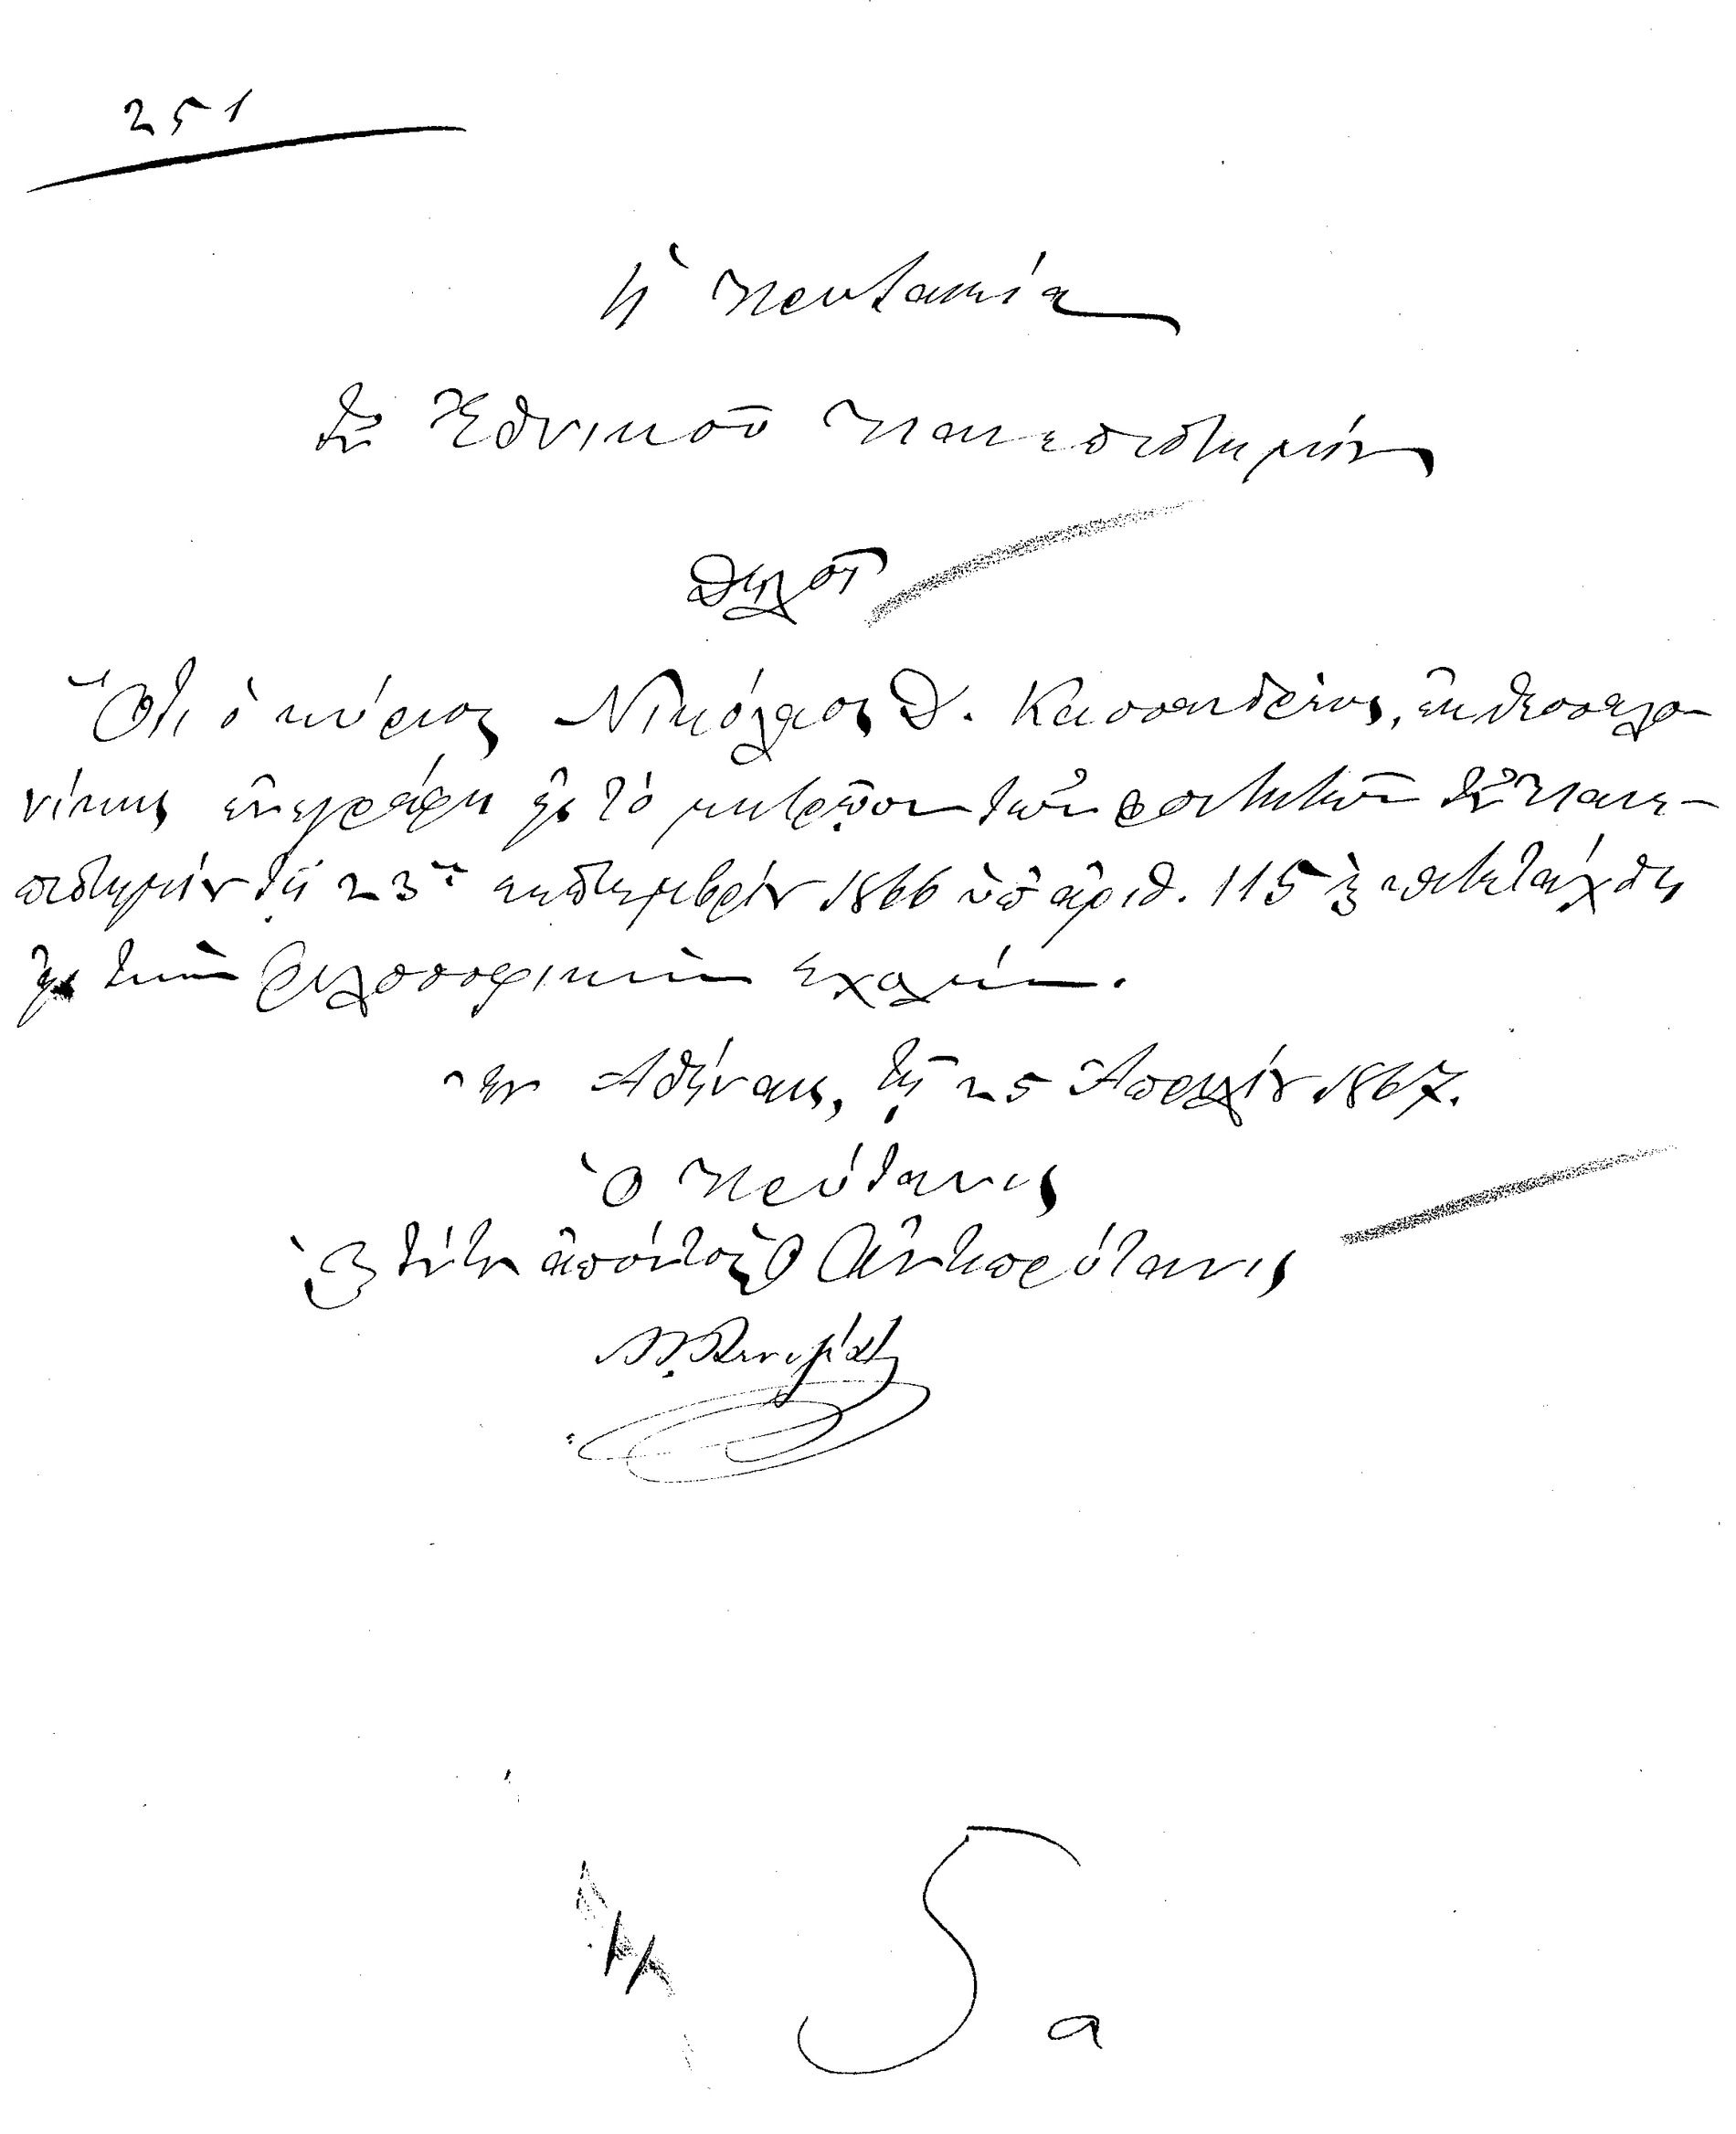 251
Ἡ Πρυτανεία
τοῦ Ἐθνικοῦ Πανεπιστημίου
Δηλοῖ
Ὅτι ὁ κύριος Νικόλαος Δ. Κασσανδρεὺς, ἐκ Θεσσαλο-
νίκης ἐνεγράφη εἰς τὸ μητρῷον τῶν φοιτητῶν τοῦ Πανε-
πιστημίου τῇ 23ῃ Σεπτεμβρίου 1866 ὑπ' ἀριθ. 115 καὶ κατετάχθη
εἰς τὴν φιλοσοφικὴν Σχολήν.
Ἐν Ἀθήναις, τῇ 25 Ἀπριλίου 1867.
Ὁ Πρύτανις
καὶ τούτου ἀπόντος Ὁ Ἀντιπρύτανις
S
a